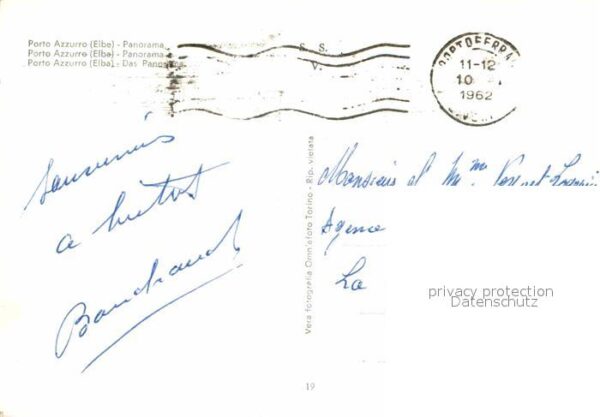 Porto Azzurro (Elba) - Panorama
Porto Azzurro (Elba) - Panorama
Porto Azzurro (Elba) - Das Panorama
S. S.
V.
PORTOFERRAI
11-12
10
1962
Souvenirs
a bientot
Vera fotografia Omniafoto Torino - Rip. vietata
Monsieur et Mme
Agence
La
privacy protection
Datenschutz
19